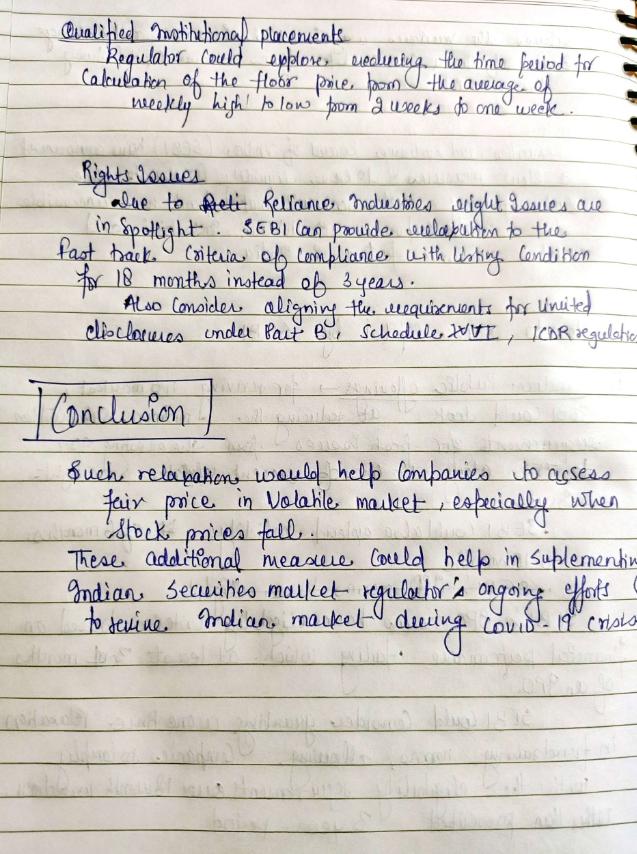 Qualified Institutional placements
Regulator Could explore reducing the time period for
Calculation of the floor price from the average of
weekly high to low from 2 weeks to one week.
Rights Issues
due to Reliance Industries right Issues are
in Spotlight. SEBI Can provide relaxation to the
fast track Criteria of Compliance with listing Condition
for 18 months instead of 3 years.
Also Consider aligning the requirements for limited
disclosures under Part B, Schedule XVI, ICDR regulatio
Conclusion
Such relaxation would help Companies to assess
fair price in Volatile market, especially when
Stock prices fall.
These additional measure Could help in suplementin
Indian Securities market regulator's ongoing efforts
to Indian market during COVID-19 crisis